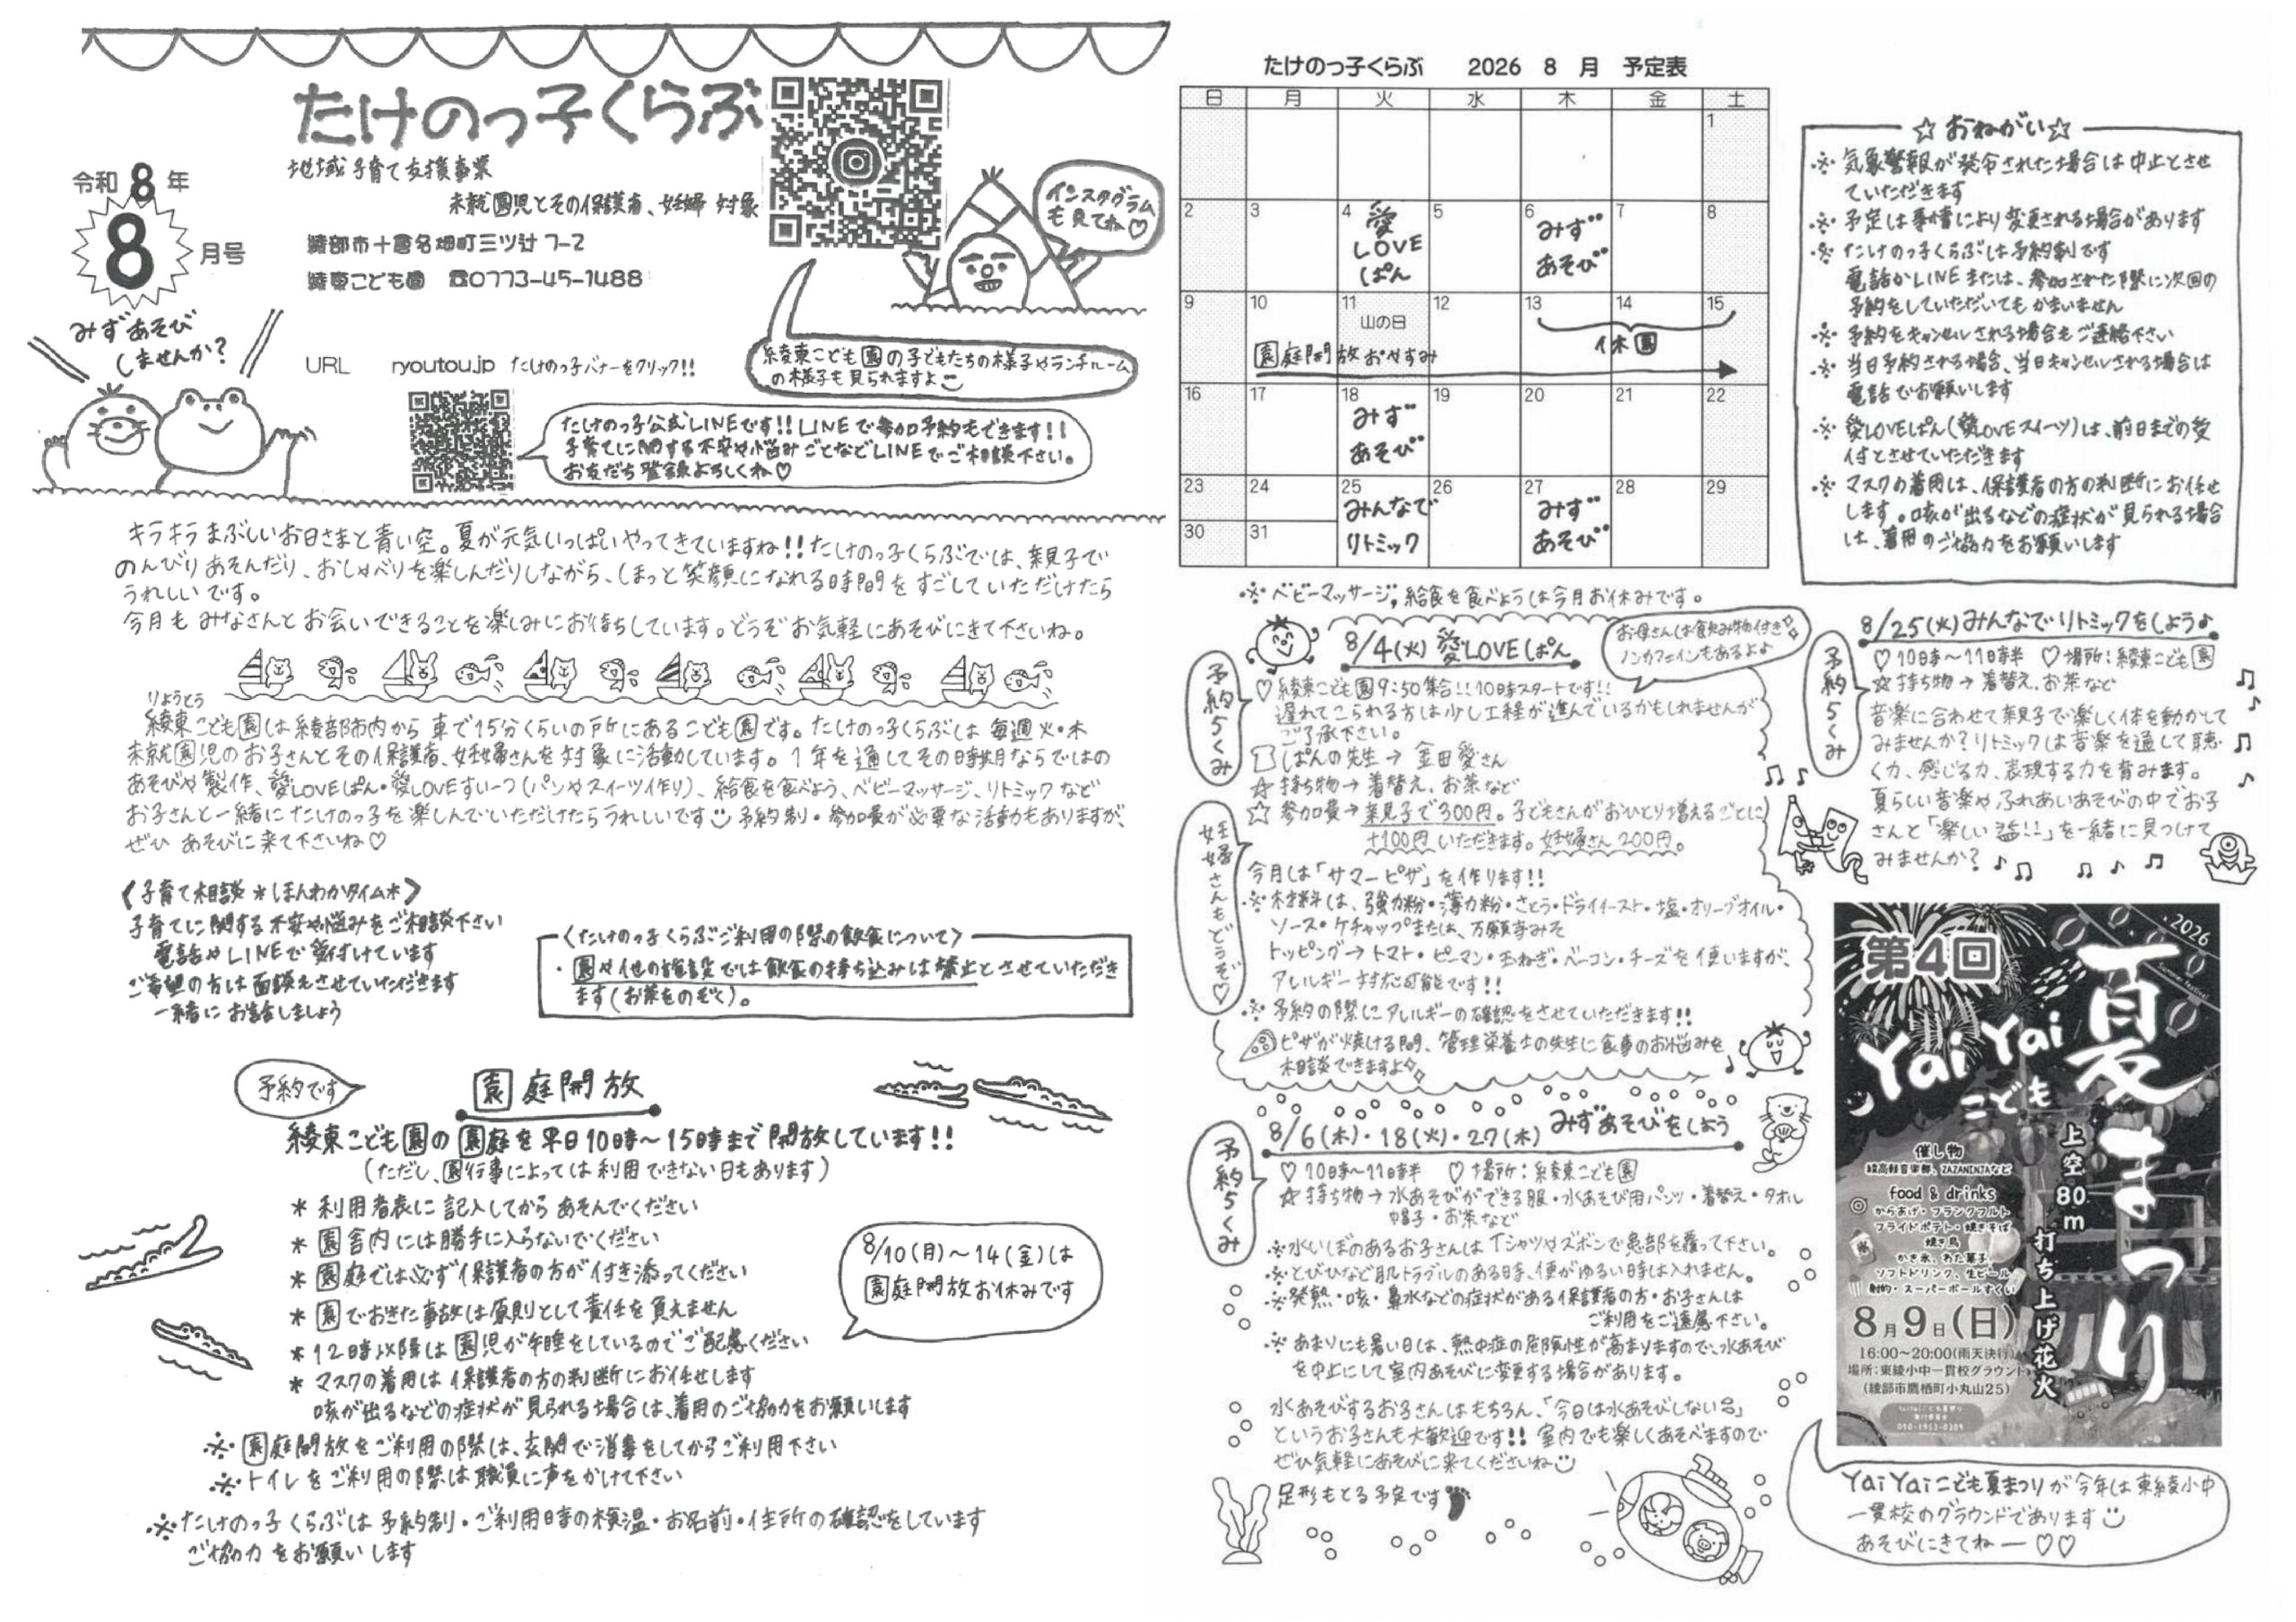 たけのっ子くらぶ
令和8年
8月号
地域子育て支援事業
未就園児とその保護者、妊婦 対象
綾部市十倉名畑町三ツ辻7-2
綾東こども園 ☎0773-45-1488
インスタグラム
も見てね♡
みずあそび
しませんか?
URL ryoutou.jp たけのっ子バナーをクリック!!
綾東こども園の子どもたちの様子やランチルーム
の様子も見られますよ
たけのっ子公式LINEです!! LINEで参加予約もできます!!
子育てに関する不安や悩みごとなどLINEでご相談下さい。
お友だち登録よろしくね♡
キラキラまぶしいお日さまと青い空。夏が元気いっぱいやってきていますね!! たけのっ子くらぶでは、親子で
のんびりあそんだり、おしゃべりを楽しんだりしながら、ほっと笑顔になれる時間をすごしていただけたら
うれしいです。
今月もみなさんとお会いできることを楽しみにお待ちしています。どうぞお気軽にあそびにきて下さいね。
りょうとう
綾東こども園は綾部市内から車で15分くらいの所にあるこども園です。たけのっ子くらぶは毎週火・木
未就園児のお子さんとその保護者、妊婦さんを対象に活動しています。1年を通してその時期ならではの
あそびや製作、愛LOVEぱん・愛LOVEすいーつ(パンやスイーツ作り)、給食を食べよう、ベビーマッサージ、リトミックなど
お子さんと一緒にたけのっ子を楽しんでいただけたらうれしいです 予約制・参加費が必要な活動もありますが、
ぜひあそびに来て下さいね♡
〈子育て相談*ほんわかタイム*〉
子育てに関する不安や悩みをご相談下さい
電話やLINEで受付けています
ご希望の方は面談もさせていただきます
一緒にお話しましょう
〈たけのっ子くらぶご利用の際の飲食について〉
・園や他の施設では飲食の持ち込みは禁止とさせていただき
ます(お茶をのぞく)。
予約です
園庭開放
綾東こども園の園庭を平日10時〜15時まで開放しています!!
(ただし、園行事によっては利用できない日もあります)
* 利用者表に記入してからあそんでください
* 園舎内には勝手に入らないでください
* 園庭では必ず保護者の方が付き添ってください
* 園でおきた事故は原則として責任を負えません
* 12時以降は園児が午睡をしているのでご配慮ください
* マスクの着用は保護者の方の判断にお任せします
咳が出るなどの症状が見られる場合は、着用のご協力をお願いします
※園庭開放をご利用の際は、玄関で消毒をしてからご利用下さい
※トイレをご利用の際は職員に声をかけて下さい
※たけのっ子くらぶは予約制・ご利用時の検温・お名前・住所の確認をしています
ご協力をお願いします
8/10(月)〜14(金)は
園庭開放お休みです
たけのっ子くらぶ 2026 8 月 予定表
日 月 火 水 木 金 土
1
2 3 4 5 6 7 8
愛
LOVE
ぱん
みず
あそび
9 10 11 12 13 14 15
山の日
園庭開放おやすみ
休園
16 17 18 19 20 21 22
みず
あそび
23 24 25 26 27 28 29
みんなで
リトミック
みず
あそび
30 31
※ベビーマッサージ、給食を食べようは今月お休みです。
☆おねがい☆
※気象警報が発令された場合は中止とさせ
ていただきます
※予定は事情により変更される場合があります
※たけのっ子くらぶは予約制です
電話かLINEまたは、参加された際に次回の
予約をしていただいてもかまいません
※予約をキャンセルされる場合もご連絡下さい
※当日予約される場合、当日キャンセルされる場合は
電話でお願いします
※愛LOVEぱん(愛LOVEスイーツ)は、前日までの受
付とさせていただきます
※マスクの着用は、保護者の方の判断にお任せ
します。咳が出るなどの症状が見られる場合
は、着用のご協力をお願いします
8/4(火) 愛LOVEぱん
お母さんは飲み物付き
ノンカフェインもあるよ♪
予約5くみ
♡綾東こども園9:50集合!! 10時スタートです!!
遅れてこられる方は少し工程が進んでいるかもしれませんが
ご了承下さい。
ぱんの先生→金田愛さん
☆持ち物→着替え、お茶など
☆参加費→親子で300円。子どもさんがおひとり増えるごとに
+100円いただきます。妊婦さん200円。
妊婦さんもどうぞ♡
今月は「サマーピザ」を作ります!!
※材料は、強力粉・薄力粉・さとう・ドライイースト・塩・オリーブオイル・
ソース・ケチャップまたは、万願寺みそ
トッピング→トマト・ピーマン・玉ねぎ・ベーコン・チーズを使いますが、
アレルギー対応可能です!!
※予約の際にアレルギーの確認をさせていただきます!!
ピザが焼ける間、管理栄養士の先生に食事のお悩みを
相談できますよ
8/6(木)・18(火)・27(木) みずあそびをしよう
予約5くみ
♡10時〜11時半 ♡場所:綾東こども園
☆持ち物→水あそびができる服・水あそび用パンツ・着替え・タオル
帽子・お茶など
※水いぼのあるお子さんはTシャツやズボンで患部を覆って下さい。
※とびひなど肌トラブルのある時、便がゆるい時は入れません。
※発熱・咳・鼻水などの症状がある保護者の方・お子さんは
ご利用をご遠慮下さい。
※あまりにも暑い日は、熱中症の危険性が高まりますので、水あそび
を中止にして室内あそびに変更する場合があります。
水あそびするお子さんはもちろん、「今日は水あそびしない日」
というお子さんも大歓迎です!! 室内でも楽しくあそべますので
ぜひ気軽にあそびに来てくださいね
足形もとる予定です
8/25(火)みんなでリトミックをしよう♪
予約5くみ
♡10時〜11時半 ♡場所:綾東こども園
☆持ち物→着替え、お茶など
音楽に合わせて親子で楽しく体を動かして
みませんか?リトミックは音楽を通して聴
く力、感じる力、表現する力を育みます。
夏らしい音楽やふれあいあそびの中でお子
さんと「楽しい
を一緒に見つけて
みませんか?
2026
Summer Festival
第4回
YaiYai
こども
夏まつり
上空80m打ち上げ花火
催し物
綾高軽音楽部、ZAZANINJAなど
food & drinks
からあげ・フランクフルト
フライドポテト・焼きそば
焼き鳥
かき氷、わた菓子
ソフトドリンク、生ビール
射的・スーパーボールすくい
8月9日(日)
16:00〜20:00(雨天決行)
場所:東綾小中一貫校グラウンド
(綾部市鷹栖町小丸山25)
YaiYaiこども夏まつりが今年は東綾小中
一貫校のグラウンドであります
あそびにきてねー♡♡